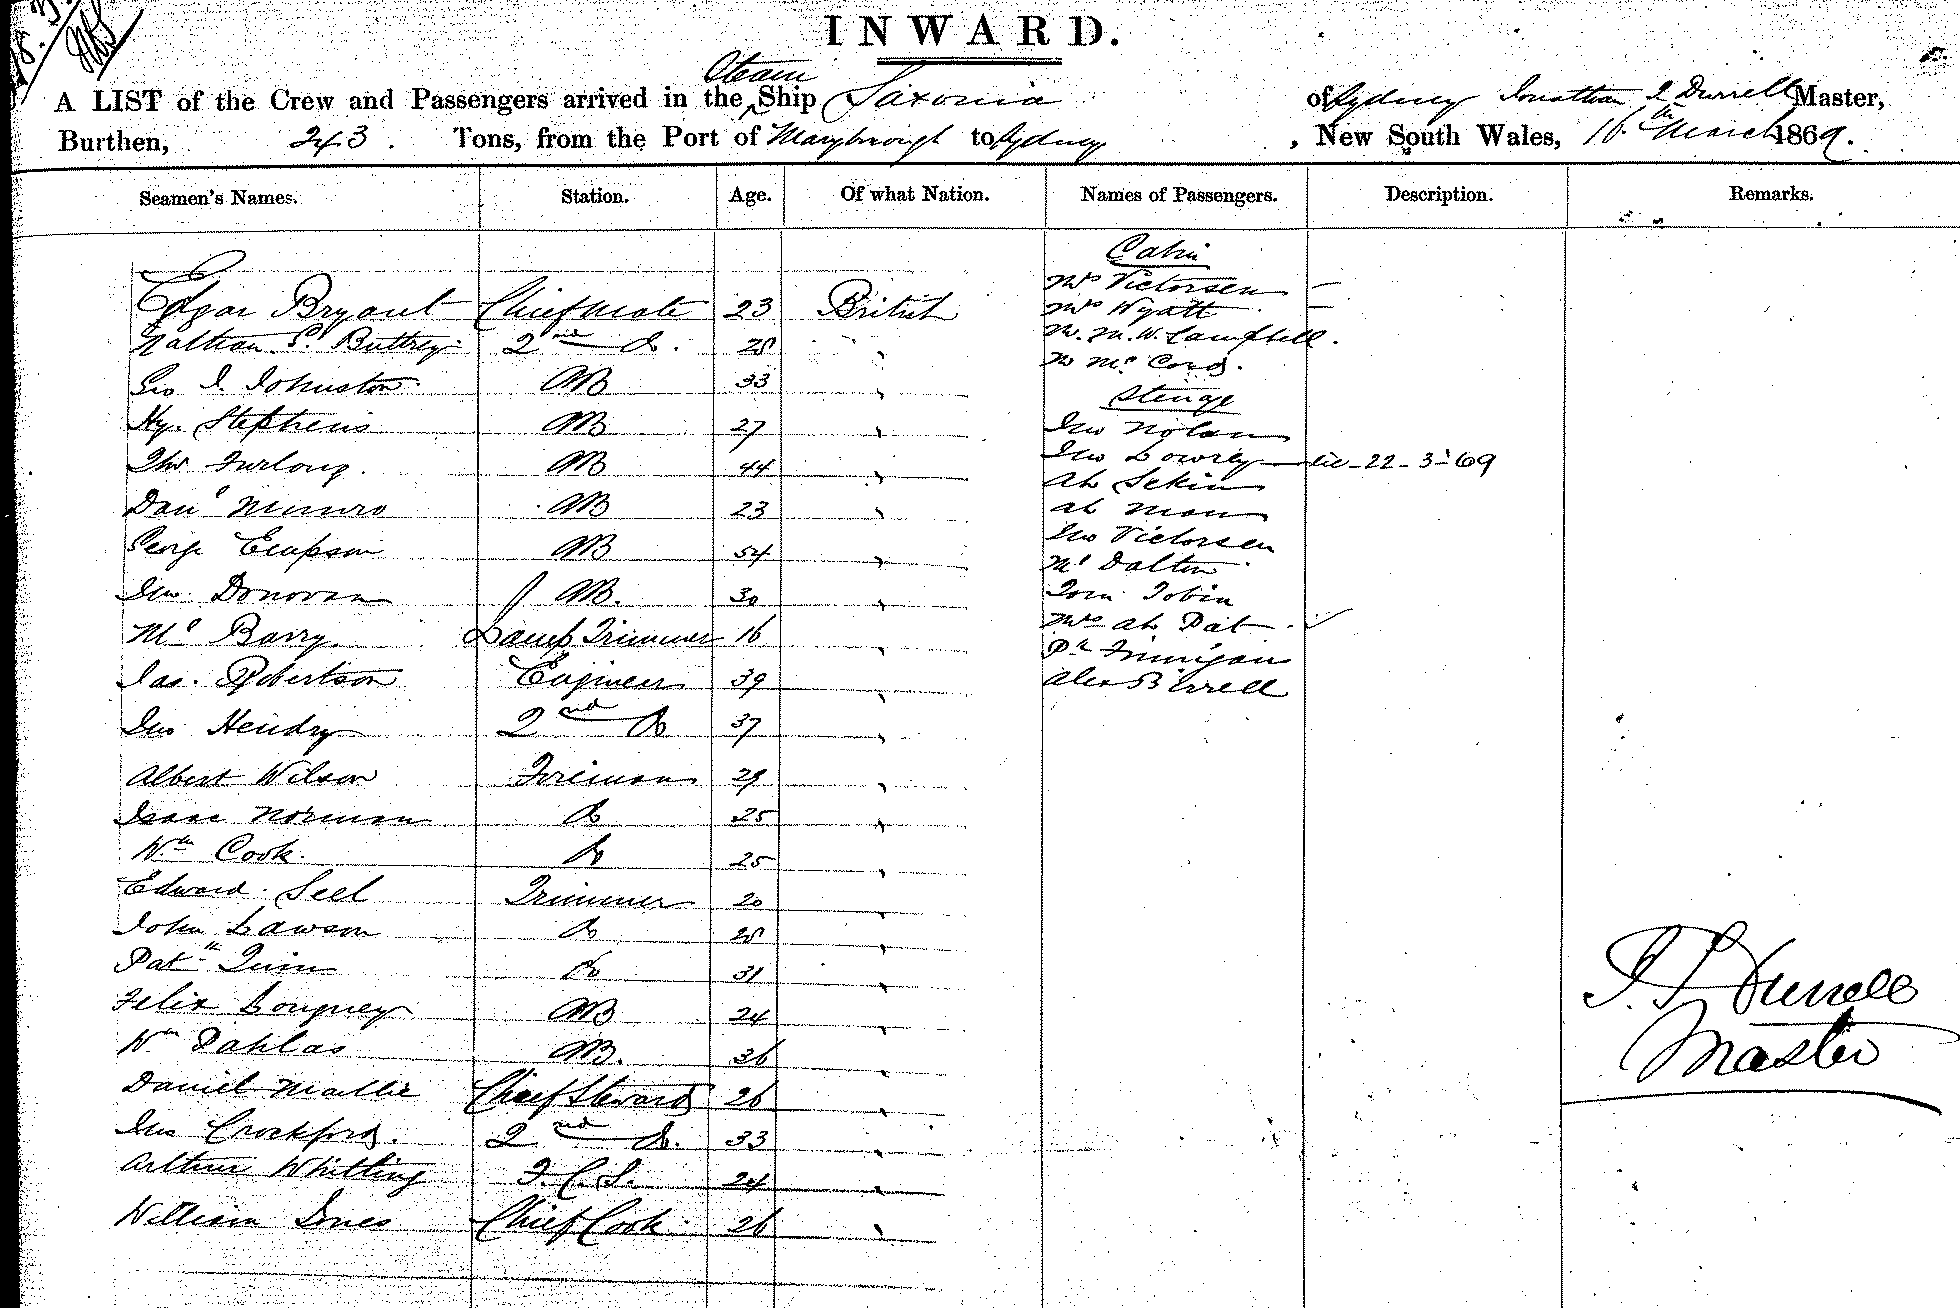 INWARD.
Steam
A LIST of the Crew and Passengers arrived in the Ship Saxonia of Sydney Jonathan Durrell Master,
Burthen, 243. Tons, from the Port of Maryborough to Sydney, New South Wales, 16th March 1869.
Seamen's Names. Station. Age. Of what Nation. Names of Passengers. Description. Remarks.
Cabin
Mrs Victorsen —
Edgar Bryant Chief Mate 23 British Mrs Wyatt —
Nathan S. Buttrey 2nd Do. M. M. W. Campbell.
Geo I. Johnston AB 33 " Mr McCord.
Steerage
Hy. Stephens AB 27 " Jno Nolan
Furlong. AB 44 " Jno Lowrey 22-3-69
Ah Sekin
Danl Munro AB 23 " Ah Mon
George Empson AB 54 " Jno Victorsen
Ml Dalton
Jno. Donovan AB. 30 " Tobin
Ml Barry. Lamp Trimmer 16 " Mrs Ah Pat
Pk Finnigan
Jas. Robertson Engineer 39 " Alex Birrell
Jno Hendry 2nd Do 37 "
Albert Wilson Fireman 29 "
Isaac Norman Do 25 "
Wm Cook. Do 25 "
Edward Seel Trimmer 20 "
John Lawson Do "
Patk Quinn Do 31 "
Felix AB 24 "
Wm Pahlas AB. 36 "
Daniel Mallie Chief Steward 26 "
Jno Crockford. 2nd Do. 33 "
Arthur Whitting F. C. S. 24 "
William Jones Chief Cook 26 "
Durrell
Master